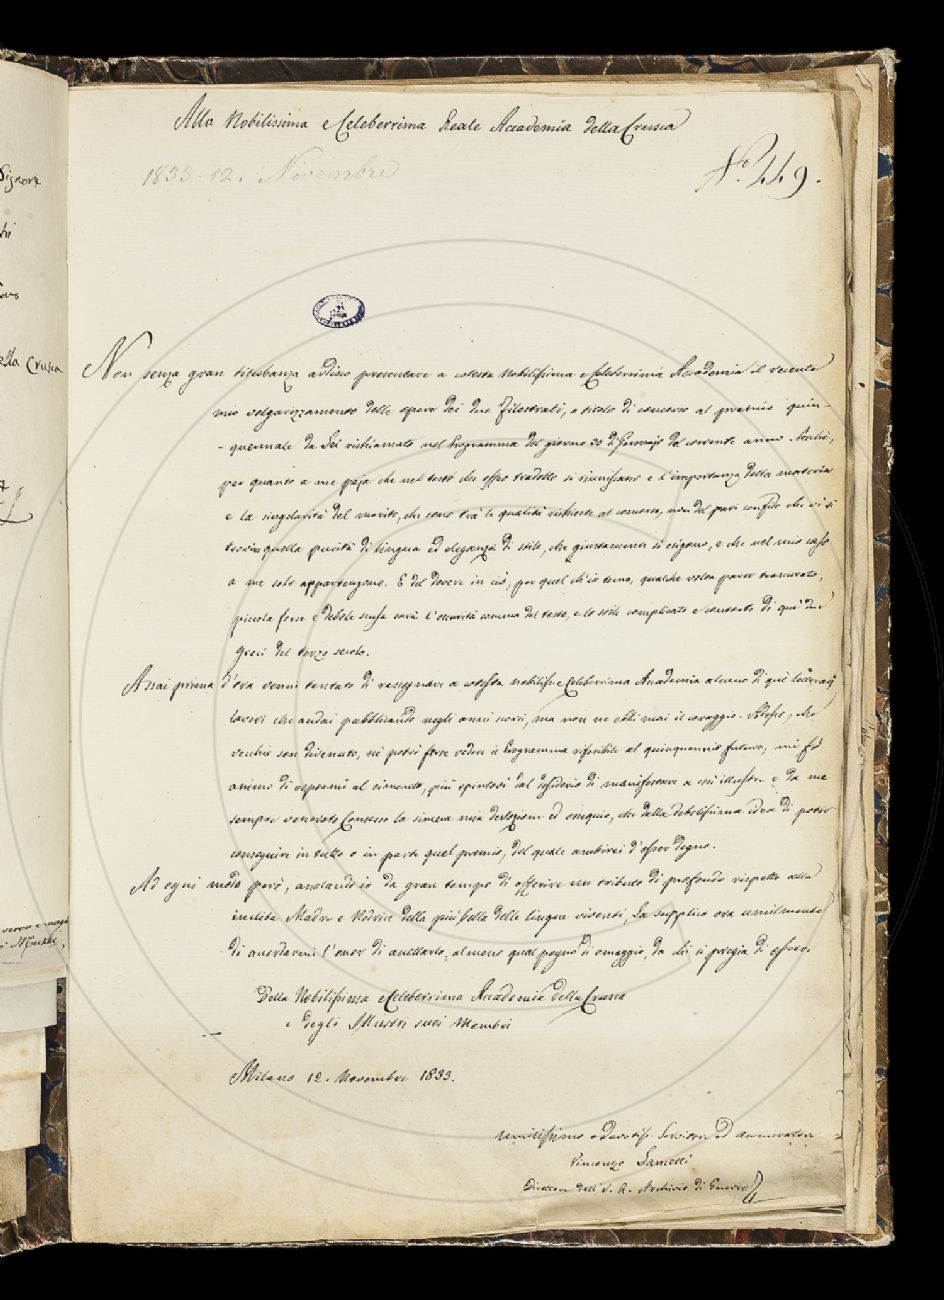 Signore
ella Crusca
Alla Nobilissima e Celeberrima Reale Accademia della Crusca
1833. 12. Novembre
N.° 449.
Non senza gran titubanza ardisco presentare a cotesta Nobilissima e Celeberrima Accademia il recente
mio volgarizzamento delle opere dei due Filostrati, a titolo di concorso al premio quin-
-quennale da Lei richiamato nel Programma del giorno 30 di Gennajo del corrente anno.
per quanto a me paja che nel testo che offro tradotto si riuniscano e l'importanza della materia
e la singolarità del merito, che sono trà le qualità richieste al concorso, non del pari confido che vi si
trovi quella purità di lingua ed eleganza di stile, che giustamente si esigono, e che nel mio caso
a me solo appartengono. E del dovere in ciò, per quel ch'io temo, qualche volta parer trascurato,
piccola forse e debole scusa sarà l'oscurità somma del testo, e lo stile complicato e contorto di que' due
greci del terzo secolo.
Assai prima d'ora venni tentato di rassegnare a cotesta nobiliss. e Celeberrima Accademia alcuno di que' letterarj
lavori che andai pubblicando negli anni scorsi, ma non ne ebbi mai il coraggio. Adesso, che
vecchio son divenuto, nè potrò forse vedere il Programma riferibile al quinquennio futuro, mi fò
animo di espormi al cimento, più spintovi dal desiderio di manifestare a così illustre e da me
sempre venerato Consesso la sincera mia devozione ed ossequio, che dalla debolissima idea di poter
conseguire in tutto o in parte quel premio, del quale ambirei d'esser degno.
Ad ogni modo però, anelando io da gran tempo di offerire un tributo di profondo rispetto alla
inclita Madre e Nutrice della più bella delle lingue viventi, La supplico ora umilmente
di accordarmi l'onor di accettarlo, almeno qual pegno di omaggio, da chi si pregia di essere
Della Nobilissima e Celeberrima Accademia della Crusca
e degli Illustri suoi Membri
Milano 12. Novembre 1833.
umilissimo e devotiss. Servitore ed ammiratore
Vincenzo Lancetti
Direttore dell' I. R. Archivio di Guerra